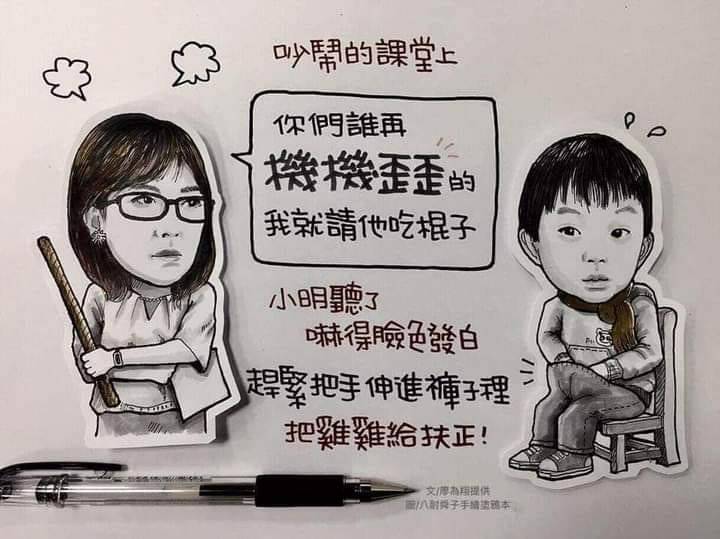 吵鬧的課堂上
你們誰再
機機歪歪的
我就請他吃棍子
小明聽了
嚇得臉色發白
趕緊把手伸進褲子裡
把雞雞給扶正!
文/廖為翔提供
圖/八耐舜子手繪塗鴉本